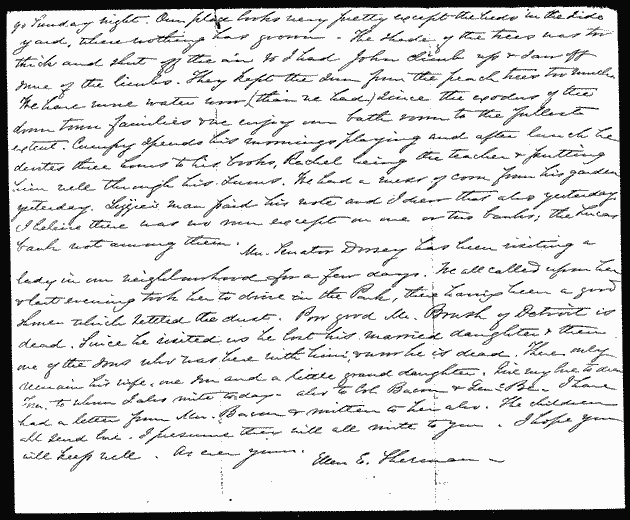 go Sunday night. Our place looks very pretty except the beds in the side
yard, where nothing has grown. The shade of the trees was too
thick and shut off the air so I had John climb up & saw off
some of the limbs. They kept the sun from the peach trees too much.
We have more water now (than we had) since the exodus of the
down town families & we enjoy our bath room to the fullest
extent. Cumpy spends his mornings playing and after lunch he
devotes three hours to his books, Rachel being the teacher & putting
him well through his sums. We had a mess of corn from his garden
yesterday. Lizzie's man paid his note and I drew that also yesterday
I believe there was no run except on one or two banks; the Lucas
bank not among them. Mrs. Senator Dorsey has been visiting a
lady in our neighbourhood for a few days. We all called upon her
& last evening took her to drive in the Park, there having been a good
shower which settled the dust. Poor good Mr. Brush of Detroit is
dead. Since he visited us he lost his married daughter & then
one of the sons who was here with him & now he is dead. There only
remain his wife, one son and a little grand daughter. Give my love to dear
Tom. to whom I also write today - also to Col. Bacon & I have
had a letter from Mrs. Bacon & written to her also. The children
all send love. I presume they will all write to you. I hope you
will keep well. As ever yours. Ellen E. Sherman